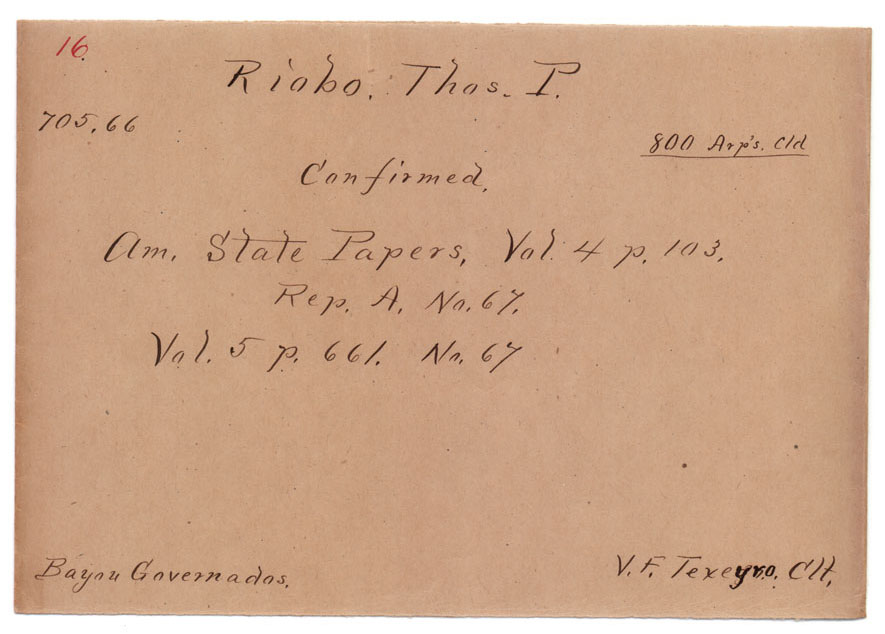 16
Riobo. Thos. P.
705.66
800 Arp's. Cld
Confirmed.
Am. State Papers, Vol. 4 p. 103.
Rep. A. No. 67.
Vol. 5 p. 661. No. 67
Bayou Governados.
V. F. Texeyro. Clt.